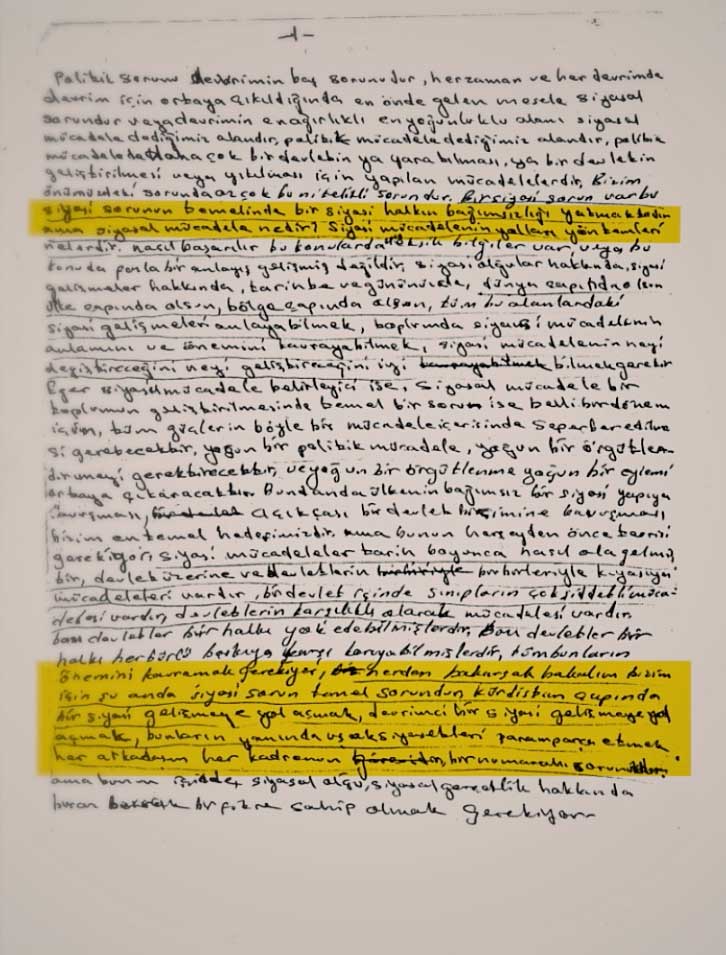 -1-
Politik sorunu devrimin baş sorunudur, herzaman ve her devrimde
devrim için ortaya çıkıldığında en önde gelen mesele siyasal
sorundur veya devrimin en ağırlıklı en yoğunluklu alanı siyasal
mücadele dediğimiz alandır, politik mücadele dediğimiz alandır, politik
mücadelede daha çok bir devletin ya yaratılması, ya bir devletin
geliştirilmesi veya yıkılması için yapılan mücadelelerdir. Bizim
önümüzdeki sorunda az çok bu nitelikli sorundur. Bir siyasi sorun var bu
siyasi sorunun temelinde bir siyasi halkın bağımsızlığı yatmaktadır
ama siyasal mücadele nedir? Siyasi mücadelenin yolları yöntemleri
nelerdir. nasıl başarılır bu konularda eksik bilgiler var, veya bu
konuda fazla bir anlayış gelişmiş değildir, siyasi olgular hakkında, siyasi
gelişmeler hakkında, tarihte ve günümüzde, dünya çapında olsun
ülke çapında olsun, bölge çapında olsun, tüm bu alanlardaki
siyasi gelişmeleri anlayabilmek, toplumda siyasi mücadelenin
anlamını ve önemini kavrayabilmek, siyasi mücadelenin neyi
değiştireceğini neyi geliştireceğini iyi bilmek gerekir
Eğer siyasal mücadele belirleyici ise, siyasal mücadele bir
toplumun geliştirilmesinde temel bir sorun ise belli bir dönem
için, tüm güçlerin böyle bir mücadele içerisinde seferber edilme
si gerekecektir, yoğun bir politik mücadele, yoğun bir örgütlen-
dirmeyi gerektirecektir, ve yoğun bir örgütlenme yoğun bir eylemi
ortaya çıkaracaktır. Bundanda ülkenin bağımsız bir siyasi yapıya
kavuşması, açıkçası bir devlet biçimine kavuşması
bizim en temel hedefimizdir. ama bunun herşeyden önce
gerekiyor, siyasi mücadeleler tarih boyunca nasıl ola gelmiş
tir, devlet üzerine ve devletlerin birbirleriyle kıyasıya
mücadeleleri vardır, bir devlet içinde sınıfların çok şiddetli müca-
delesi vardır, devletlerin karşılıklı olarak mücadelesi vardır
bazı devletler bir halkı yok edebilmişlerdir, bazı devletler bir
halkı her türlü baskıya karşı koruyabilmişlerdir, tüm bunların
önemini kavramak gerekiyor, nerden bakarsak bakalım bizim
için şu anda siyasi sorun temel sorundur, kürdistan çapında
bir siyasi gelişmeye yol açmak, devrimci bir siyasi gelişmeye yol
açmak, bunların yanında uşak siyasetleri paramparça etmek
her arkadaşın her kadronun bir numaralı sorunudur
ama bunun siyasal olgu, siyasal gerçeklik hakkında
bir fikre sahip olmak gerekiyor